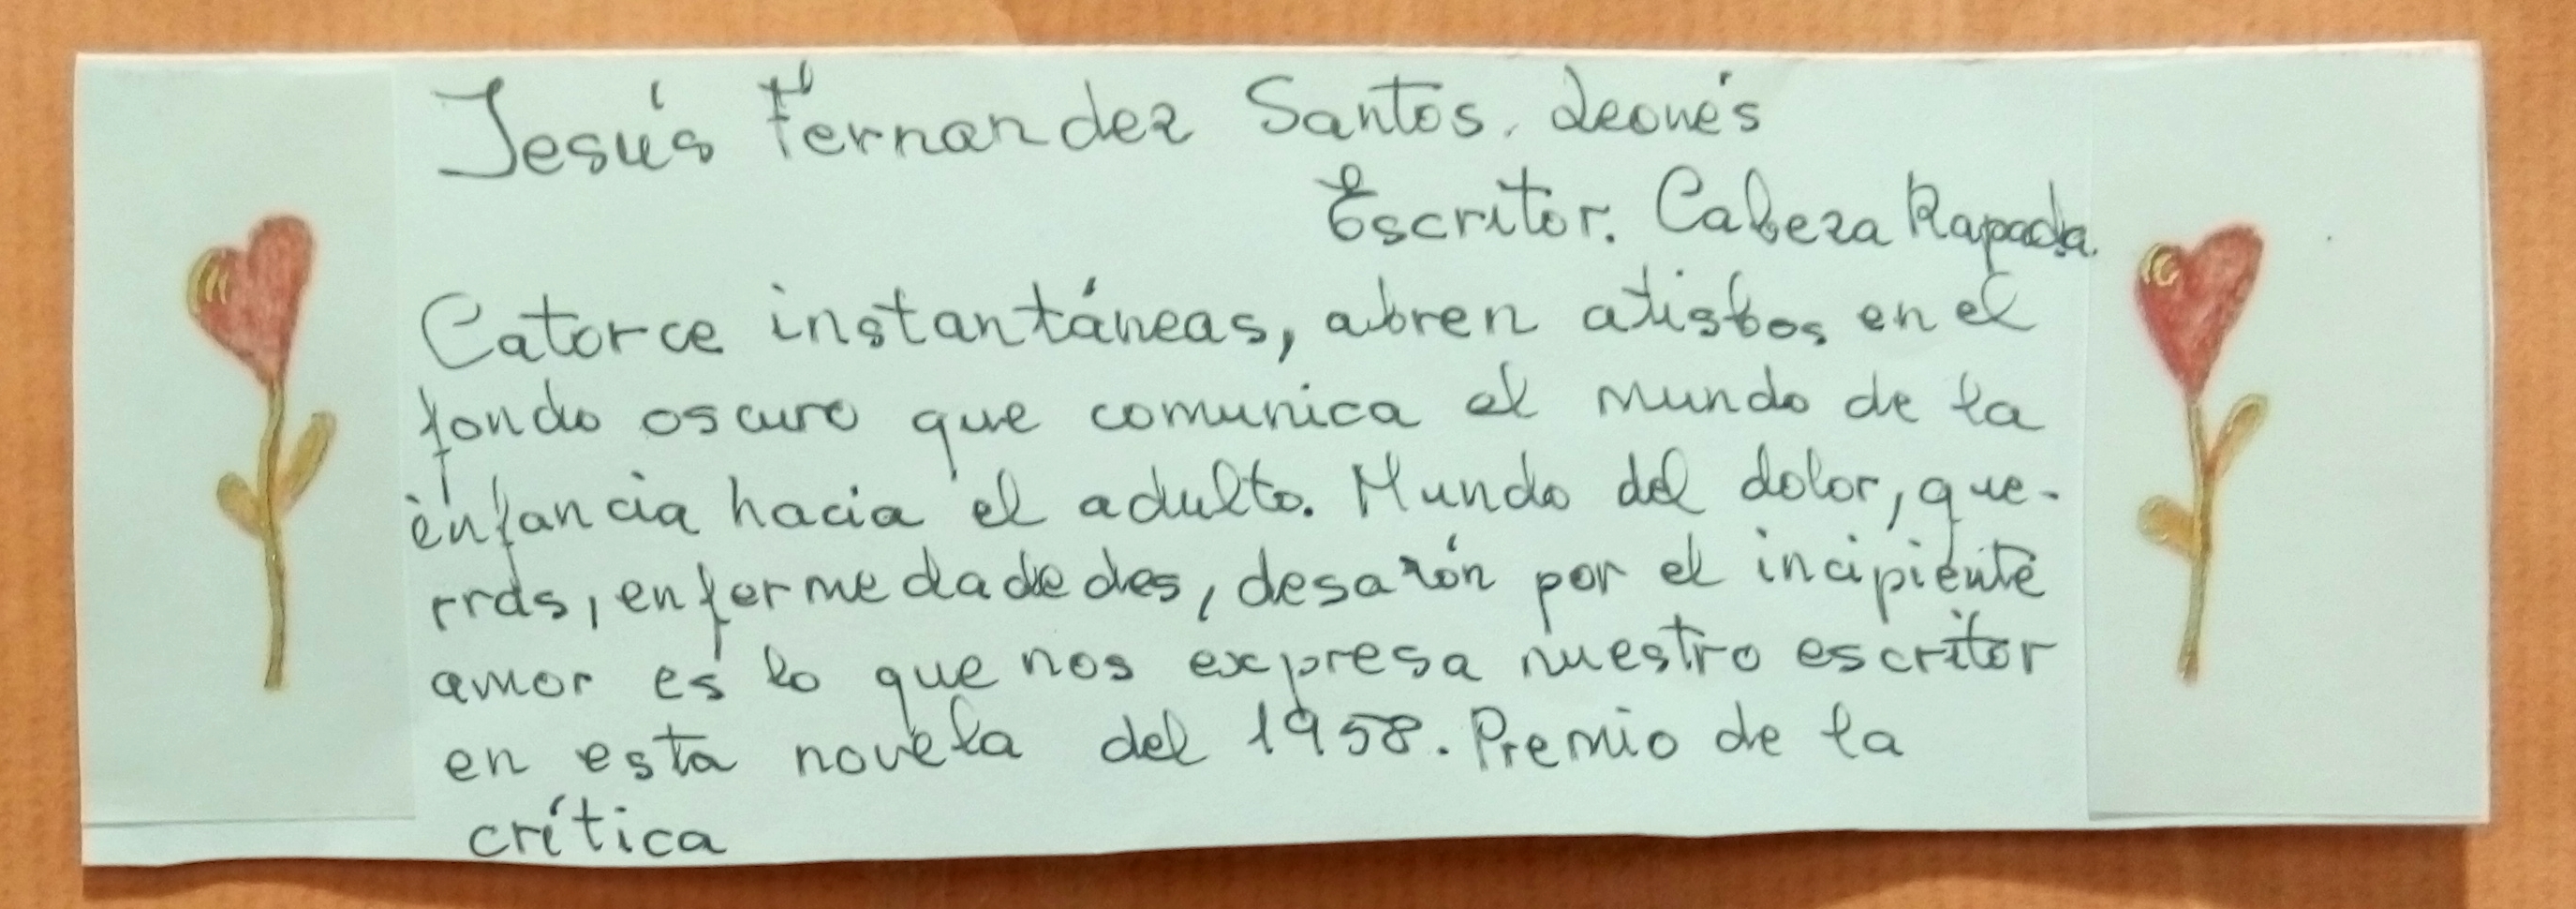 Jesús Fernandez Santos. Leonés
Escritor. Cabeza Rapada.
Catorce instantáneas, abren atisbos en el
fondo oscuro que comunica el mundo de la
infancia hacia el adulto. Mundo del dolor, gue-
rras, enfermedadedes, desazón por el incipiente
amor es lo que nos expresa nuestro escritor
en esta novela del 1958. Premio de la
crítica